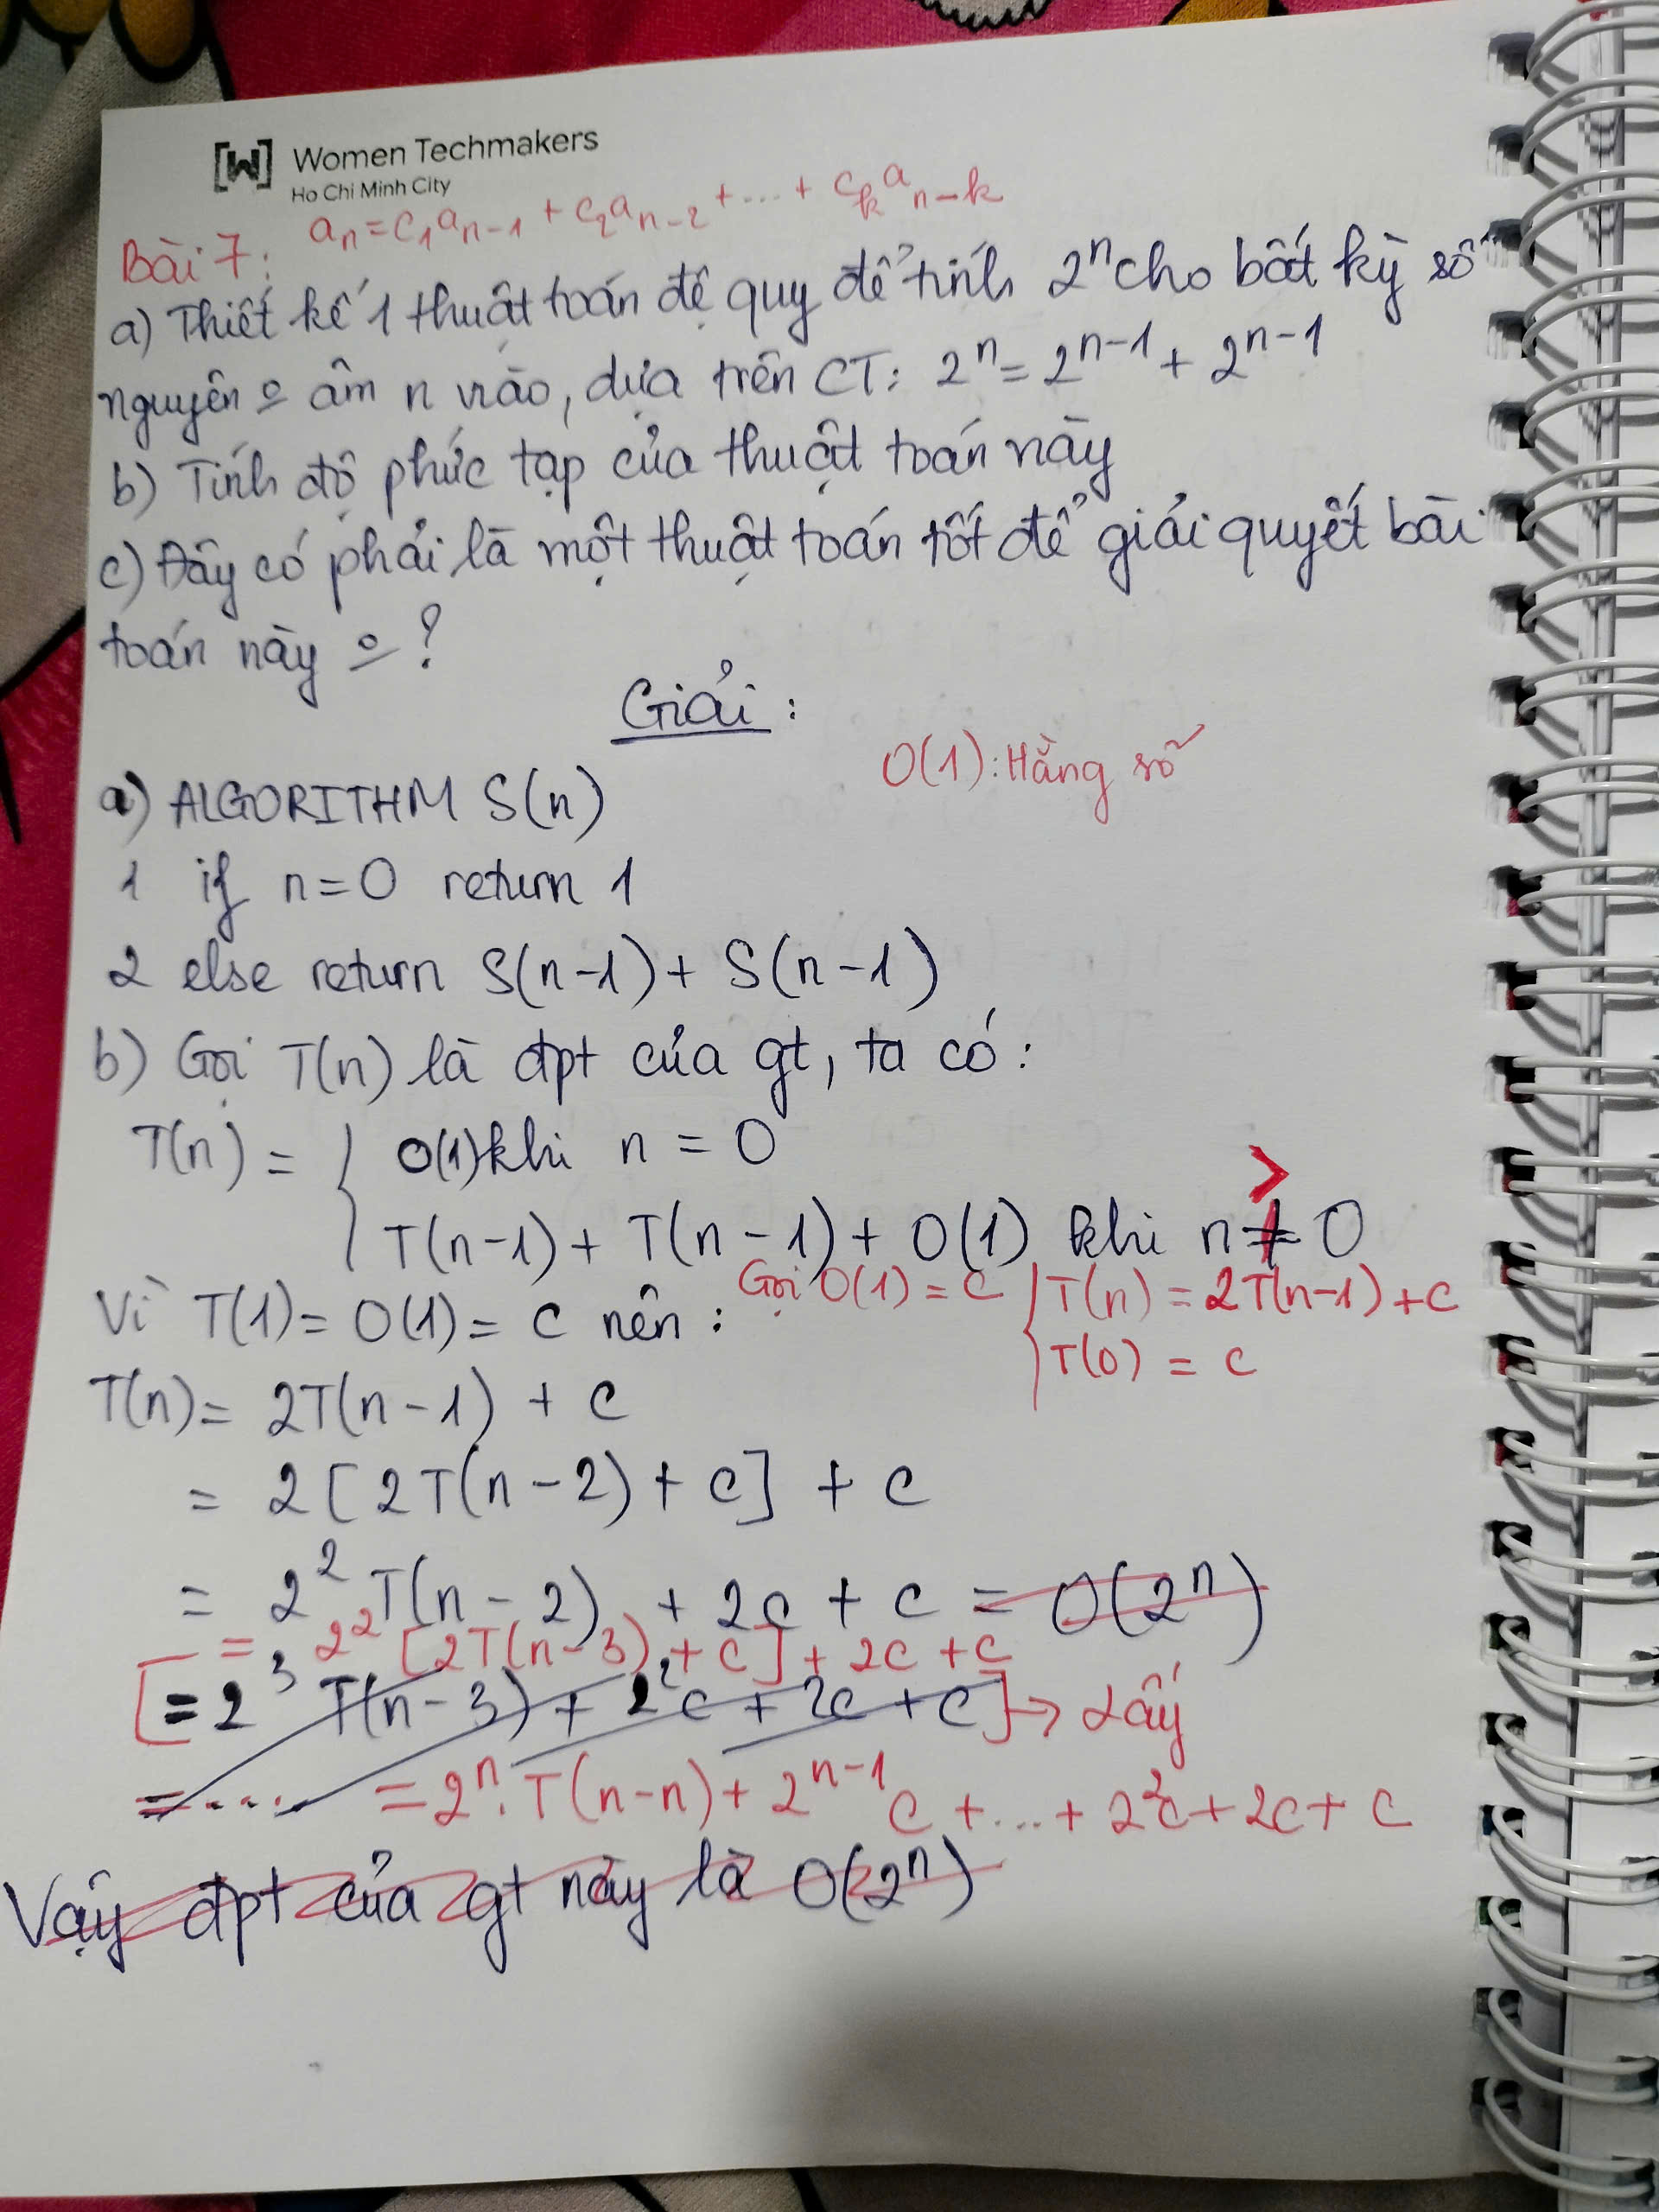 [W] Women Techmakers
Ho Chi Minh City
Bài 7: aₙ = c₁aₙ₋₁ + c₂aₙ₋₂ + ... + cₖaₙ₋ₖ
a) Thiết kế 1 thuật toán đệ quy để tính 2ⁿ cho bất kỳ số
nguyên o âm n nào, dựa trên CT: 2ⁿ = 2ⁿ⁻¹ + 2ⁿ⁻¹
b) Tính độ phức tạp của thuật toán này
c) Đây có phải là một thuật toán tốt để giải quyết bài
toán này o ?
Giải:
O(1): Hằng số
a) ALGORITHM S(n)
1 if n=0 return 1
2 else return S(n-1) + S(n-1)
b) Gọi T(n) là đpt của gt, ta có:
T(n) = { O(1) khi n = 0
T(n-1) + T(n-1) + O(1) khi n ≠ 0
>
Vì T(1) = O(1) = c nên:
Gọi O(1) = c { T(n) = 2T(n-1) + c
T(0) = c
T(n) = 2T(n-1) + c
= 2[2T(n-2) + c] + c
= 2² T(n-2) + 2c + c = O(2ⁿ)
= 2² [2T(n-3) + c] + 2c + c
[= 2³ T(n-3) + 2²c + 2c + c] → 2 ấy
= .... = 2ⁿ. T(n-n) + 2ⁿ⁻¹c + ... + 2²c + 2c + c
Vậy đpt của gt này là O(2ⁿ)